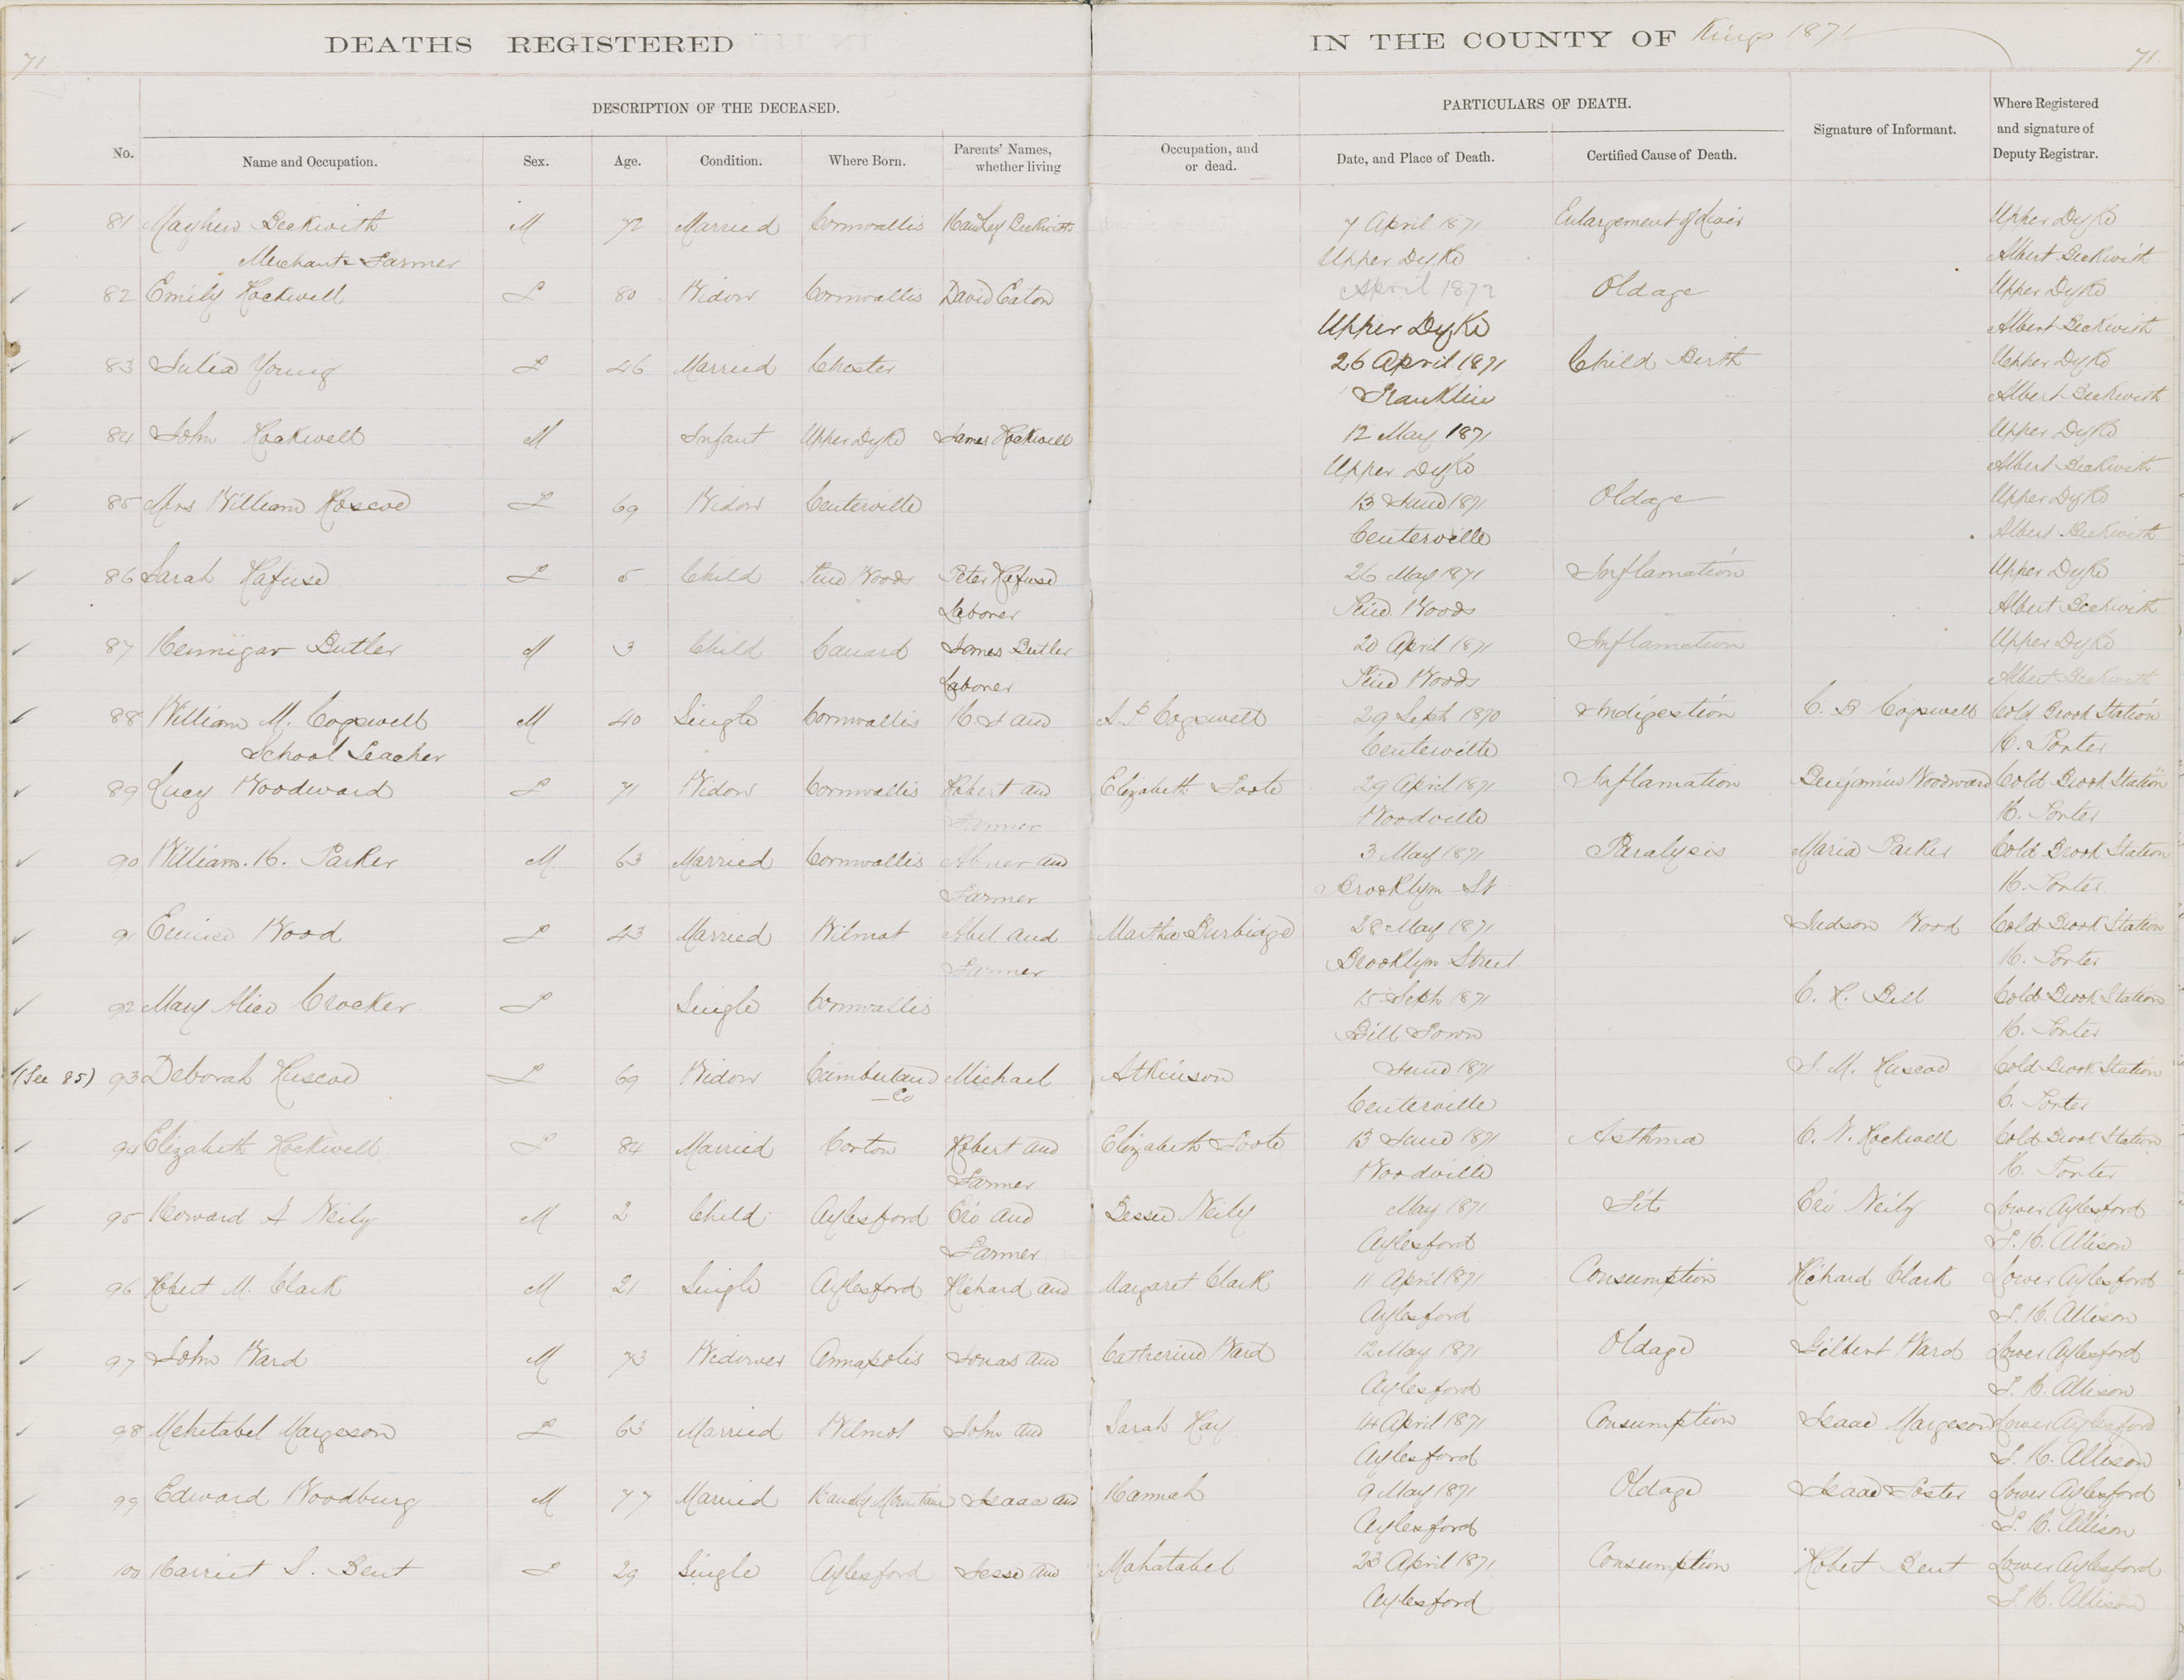 71
DEATHS REGISTERED
IN THE COUNTY OF Kings 1871
71
DESCRIPTION OF THE DECEASED.
PARTICULARS OF DEATH.
No. Name and Occupation. Sex. Age. Condition. Where Born. Parents' Names, whether living Occupation, and or dead. Date, and Place of Death. Certified Cause of Death. Signature of Informant. Where Registered and signature of Deputy Registrar.
81 Mayhew Beckwith M 72 Married Cornwallis Beckwith 7 April 1871 Enlargement of Liver Upper Dyke
Merchant & Farmer Upper Dyke Albert Beckwith
82 Emily Rockwell F 80 Widow Cornwallis David Eaton April 1872 Old age Upper Dyke
Upper Dyke Albert Beckwith
83 Julia Young F 46 Married Chester 26 April 1871 Child Birth Upper Dyke
Franklin Albert Beckwith
84 John Rockwell M Infant Upper Dyke James Rockwell 12 May 1871 Upper Dyke
Upper Dyke Albert Beckwith
85 Mrs William Roscoe F 69 Widow Centerville 13 June 1871 Old age Upper Dyke
Centerville Albert Beckwith
86 Sarah Rafuse F 5 Child Pine Woods Peter Rafuse 26 May 1871 Inflamation Upper Dyke
Laborer Pine Woods Albert Beckwith
87 Hennigar Butler M 3 Child Canard James Butler 20 April 1871 Inflamation Upper Dyke
Laborer Pine Woods Albert Beckwith
88 William M. Cogswell M 40 Single Cornwallis and Cogswell 29 Sept 1870 Indigestion C. B Cogswell Cold Brook Station
School Teacher Centerville H. Porter
89 Lucy Woodward F 71 Widow Cornwallis Robert and Elizabeth Foote 29 April 1871 Inflamation Benjamin Woodward Cold Brook Station
Farmer Woodville H. Porter
90 William. H. Parker M 63 Married Cornwallis Abner and 3 May 1871 Paralysis Maria Parker Cold Brook Station
Farmer Brooklym St H. Porter
91 Eunice Wood F 43 Married Wilmot Abel and Martha Burbidge 28 May 1871 Judson Wood Cold Brook Station
Farmer Brooklym Street H. Porter
92 Mary Alice Crocker F Single Cornwallis 15 Sept 1871 C. R. Bill Cold Brook Station
Bill Town H. Porter
(See 85) 93 Deborah Ruscoe F 69 Widow Cumberland Michael Atkinson June 1871 Ruscoe Cold Brook Station
Co Centerville Porter
94 Elizabeth Rockwell F 84 Married Horton Robert and Elizabeth Foote 13 June 1871 Asthma C. N. Rockwell Cold Brook Station
Farmer Woodville H. Porter
95 Howard Neily M 2 Child Aylesford and Bessie Neily May 1871 Fit Neily Lower Aylesford
Farmer Aylesford Allison
96 Robert M. Clark M 21 Single Aylesford Richard and Margaret Clark 11 April 1871 Consumption Richard Clark Lower Aylesford
Aylesford Allison
97 John Ward M 73 Widower Annapolis Jonas and Catherine Ward 12 May 1871 Old age Gilbert Ward Lower Aylesford
Aylesford Allison
98 Mehitabel Margeson F 63 Married Wilmot John and Sarah Ray 14 April 1871 Consumption Isaac Margeson Lower Aylesford
Aylesford Allison
99 Edward Woodbury M 77 Married Handly Mountain Isaac and Hannah 9 May 1871 Old age Isaac Foster Lower Aylesford
Aylesford Allison
100 Harriet S. Bent F 29 Single Aylesford Jesse and Mahatabel 23 April 1871 Consumption Robert Bent Lower Aylesford
Aylesford Allison